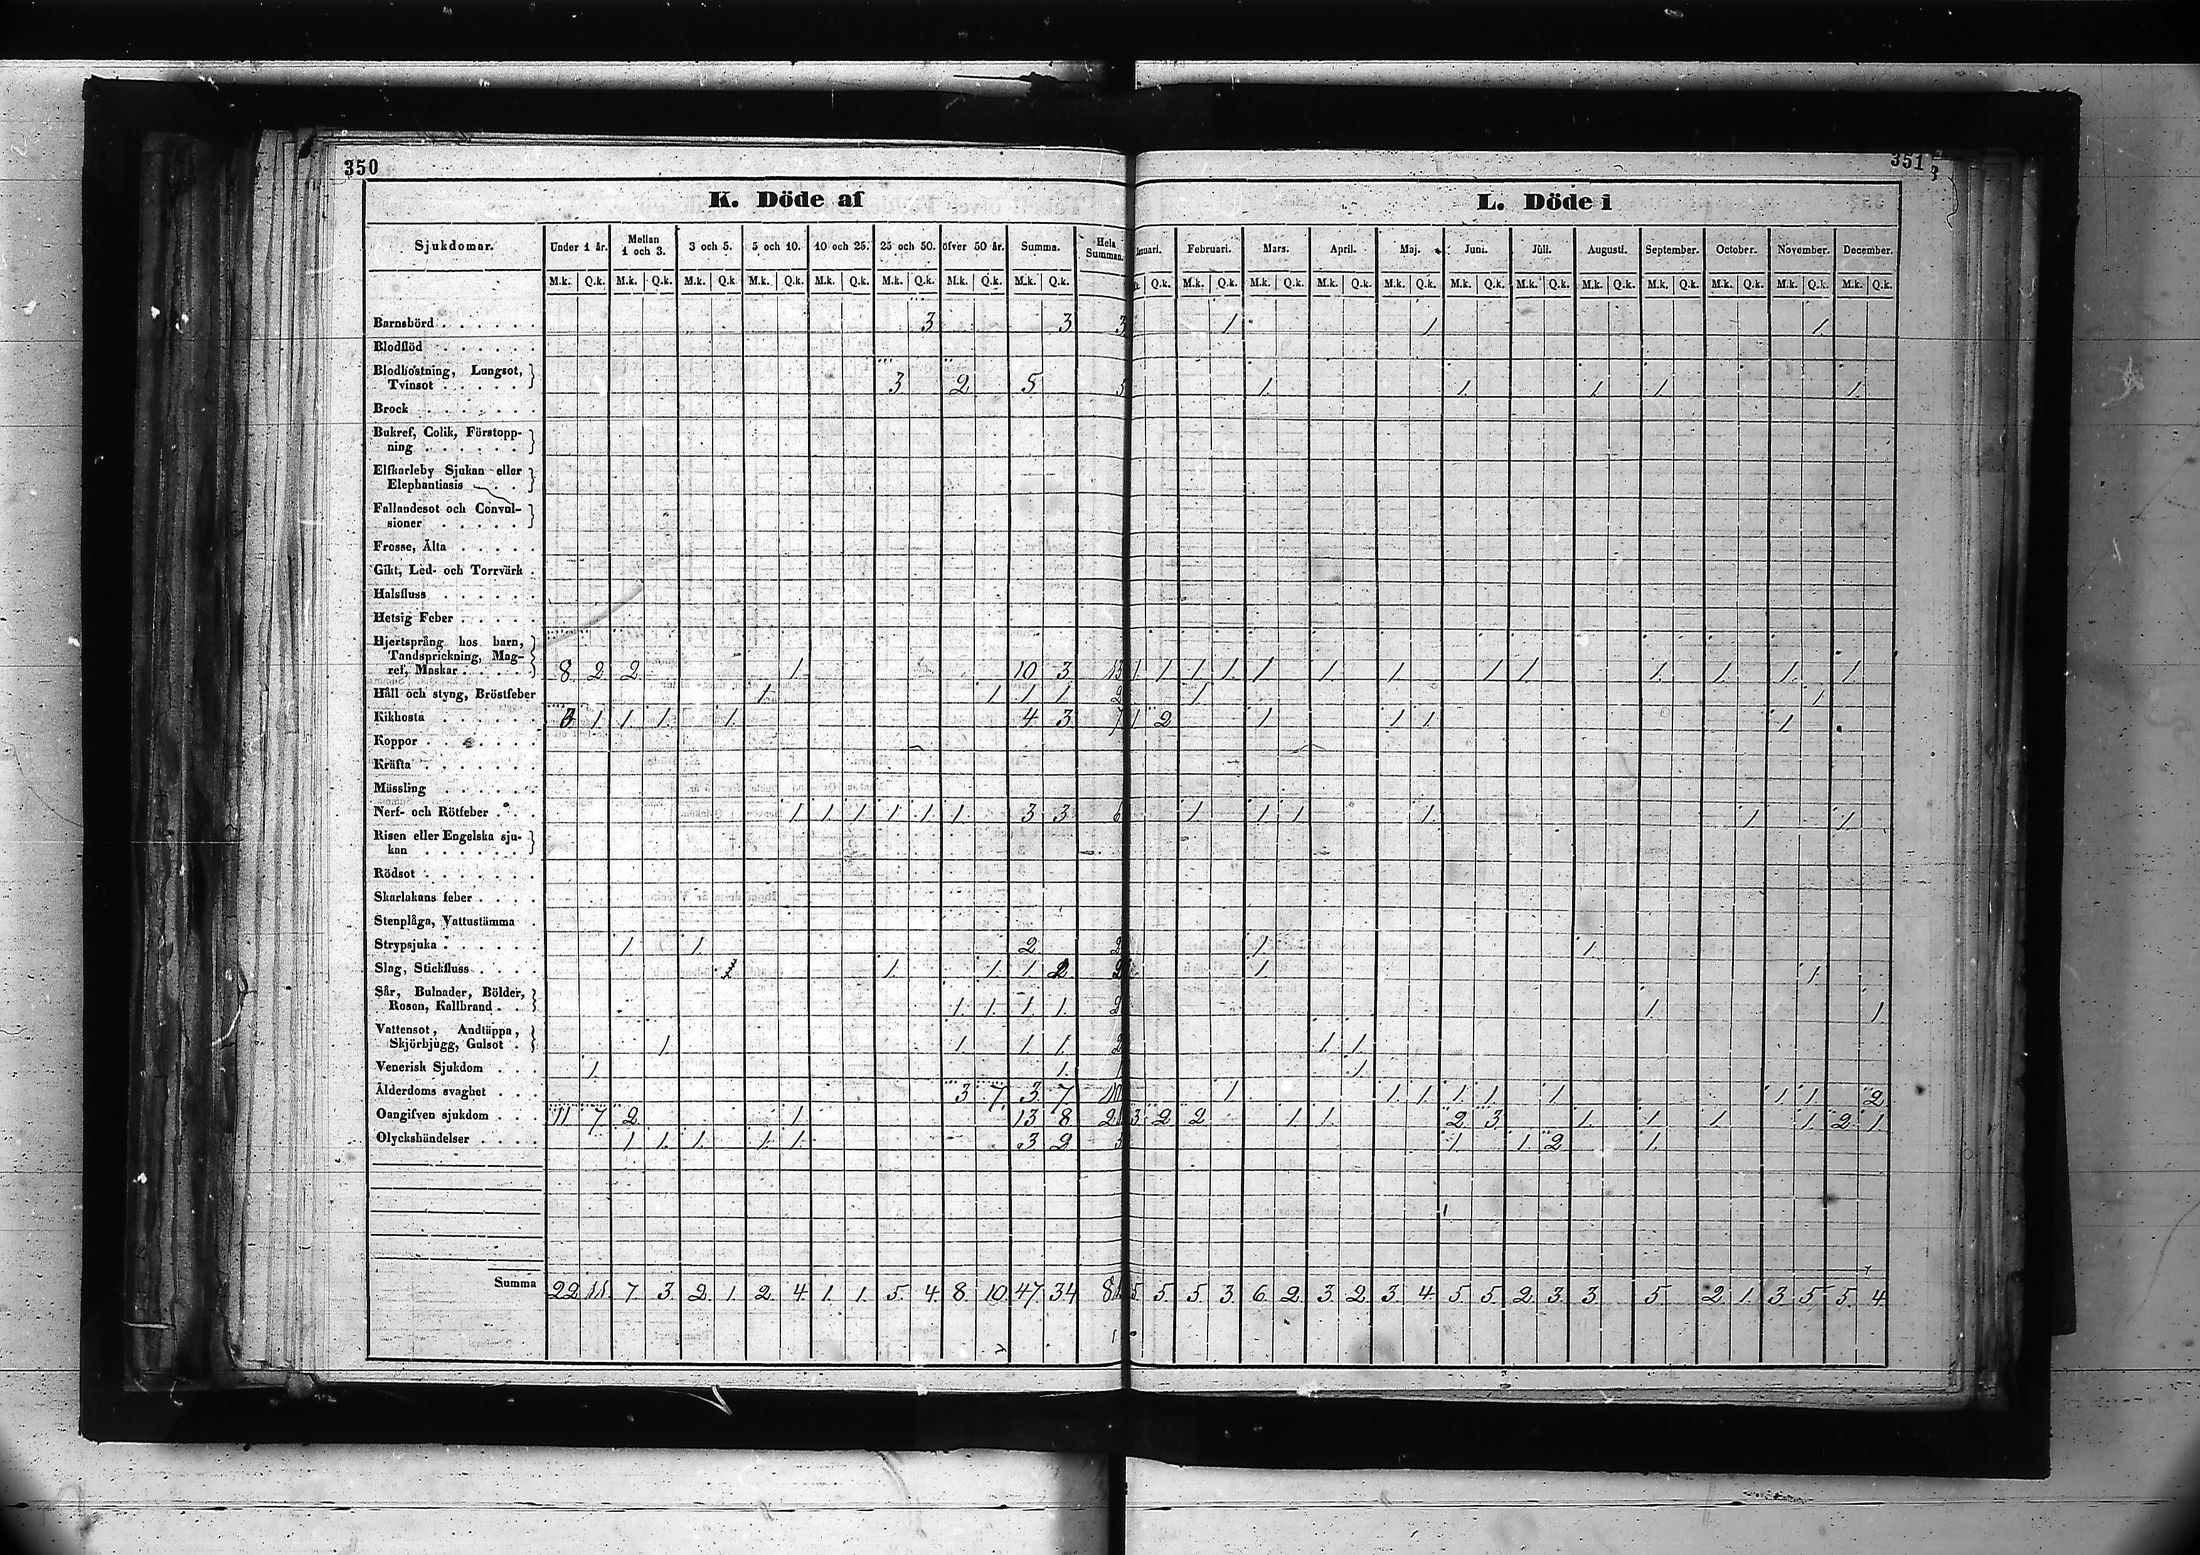 350
351
3
K. Döde af
L. Döde i
Sjukdomar. Under 1 år. Mellan 1 och 3. 3 och 5. 5 och 10. 10 och 25. 25 och 50. öfver 50 år. Summa. Hela Summan. anuari. Februari. Mars. April. Maj. Juni. Juli. Augusti. September. October. November. December.
M.k. Q.k. M.k. Q.k. M.k. Q.k. M.k. Q.k. M.k. Q.k. M.k. Q.k. M.k. Q.k. M.k. Q.k. Q.k. M.k. Q.k. M.k. Q.k. M.k. Q.k. M.k. Q.k. M.k. Q.k. M.k. Q.k. M.k. Q.k. M.k. Q.k. M.k. Q.k. M.k. Q.k. M.k. Q.k.
Barnsbörd 3. 3 3 1 1 1
Blodflöd
Blodhostning, Lungsot,
Tvinsot 3. 2. 5 5 1. 1. 1 1. 1.
Brock
Bukref, Colik, Förstopp-
ning
Elfkarleby Sjukan eller
Elephantiasis
Fallandesot och Convul-
sioner
Frosse, Älta
Gikt, Led- och Torrvärk
Halsfluss
Hetsig Feber
Hjertsprång hos barn,
Tandsprickning, Mag-
ref, Maskar 8. 2 2 1. 10 3. 13 1 1 1. 1. 1 1. 1 1 1. 1. 1. 1. 1
Håll och styng, Bröstfeber 1. 1 1 1 2 1 1
Kikhosta 3 1 1. 1. 1. 4 3 7 1 2 1 1 1 1
Koppor
Kräfta
Mässling
Nerf- och Rötfeber 1. 1 1. 1. 1. 1. 3 3 6 1 1. 1 1. 1. 1.
Risen eller Engelska sju-
kan
Rödsot
Skarlakans feber
Stenplåga, Vattustämma
Strypsjuka 1. 1. 2 2 1. 1
Slag, Stickfluss 1. 1. 1 2 1. 1
Sår, Bulnader, Bölder,
Rosen, Kallbrand 1. 1. 1. 1. 2 1 1.
Vattensot, Andtäppa,
Skjörbjugg, Gulsot 1. 1. 1. 1. 2 1. 1
Venerisk Sjukdom 1. 1. 1.
Ålderdoms svaghet 3 7. 3. 7 10 1 1. 1 1. 1. 1 1 1. 2
Oangifven sjukdom 11 7 2 1 13 8 21 3 2 2 1. 1. 2 3 1. 1. 1 1. 2. 1.
Olyckshändelser 1. 1. 1. 1. 1. 3 2 5 1. 1 2 1.
Summa 22 11. 7. 3. 2. 1 2. 4 1. 1. 5. 4. 8. 10 47 34 81 5. 5 5. 3. 6. 2. 3. 2. 3. 4. 5. 5. 2. 3. 3. 5. 2. 1. 3. 5. 5. 4.